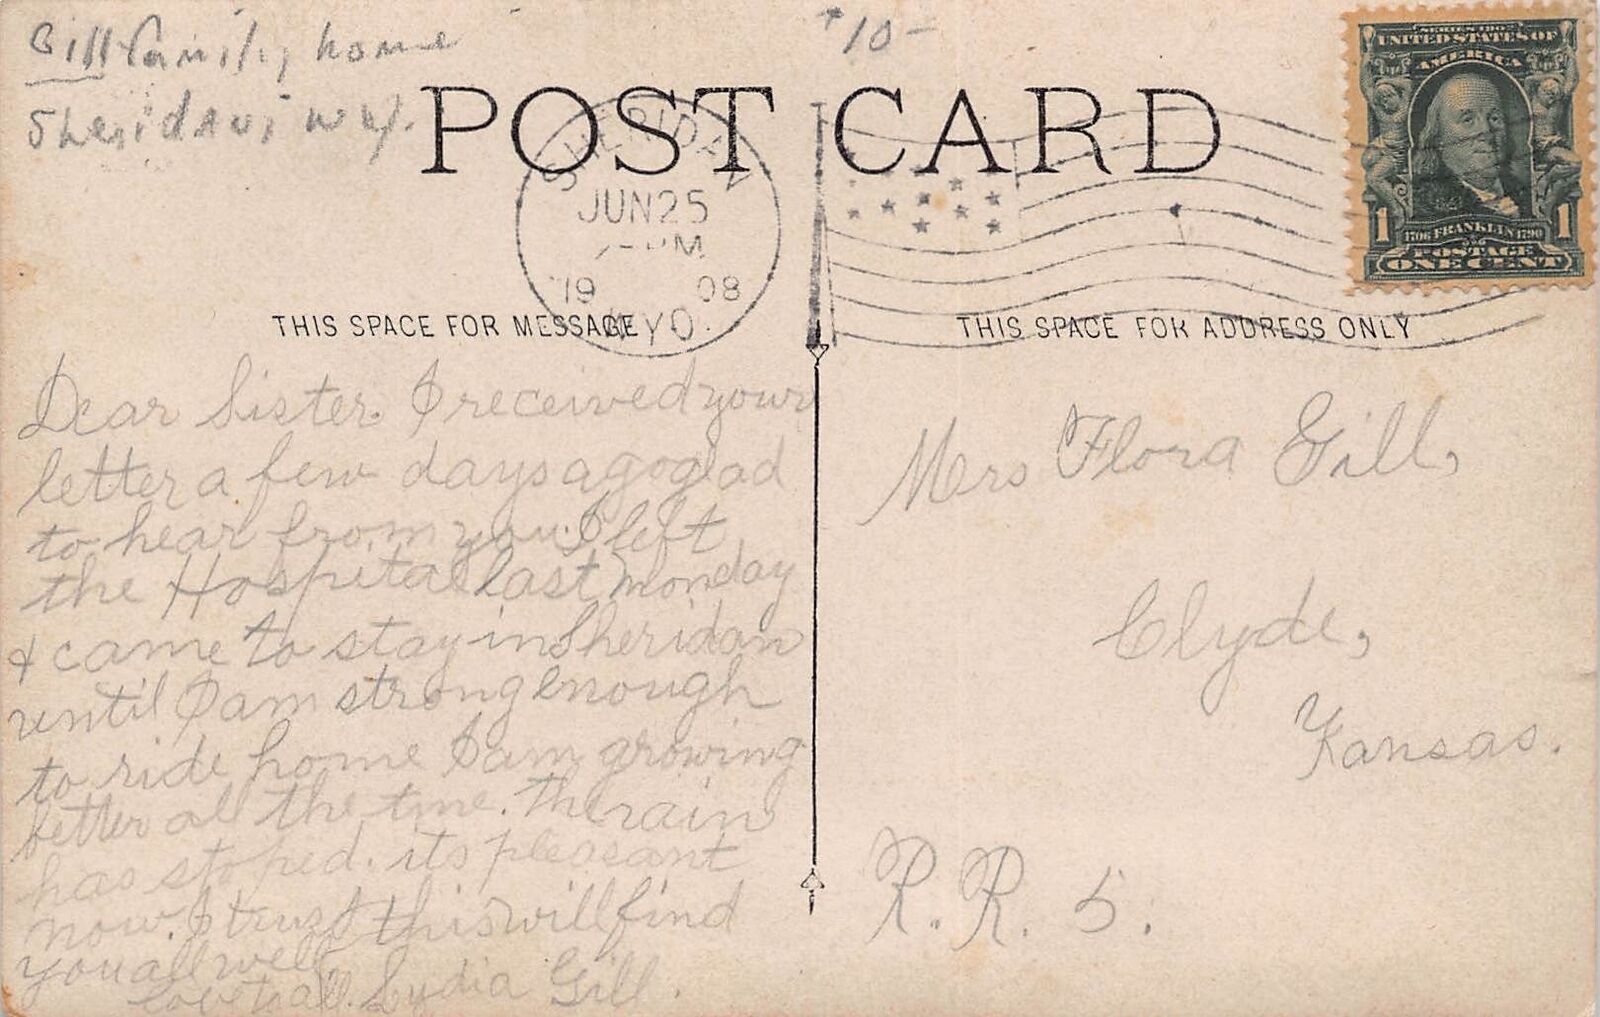 Gill family home
Sheridan, Wy.
10-
POST CARD
SHERIDAN
JUN 25
PM
1908
WYO.
SERIES 1902
UNITED STATES OF
AMERICA
1 1
1706 FRANKLIN 1790
POSTAGE
ONE CENT
THIS SPACE FOR MESSAGE
THIS SPACE FOR ADDRESS ONLY
Dear Sister. I received your
letter a few days ago glad
to hear from you. I left
the Hospital last Monday
& came to stay in Sheridan
until I am strong enough
to ride home I am growing
better all the time. The rain
has stoped. its pleasant
now. I trust this will find
you all well
love to all. Lydia Gill.
Mrs Flora Gill,
Clyde,
Kansas.
R. R. 5.